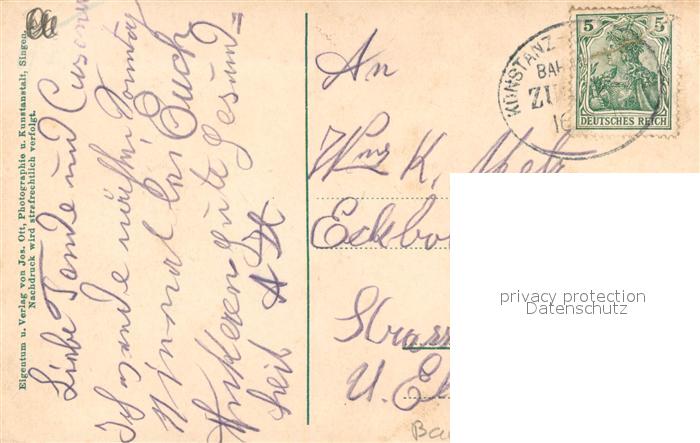 Eigentum u. Verlag von Jos. Ott, Photographie u. Kunstanstalt, Singen.
Nachdruck wird strafrechtlich verfolgt.
Liebe Tande und Cusenn
Ich werde nächsten Sonntag
einmal bei Euch
gute Gesund=
heit
An
K. Metz
Eckbo
Strass
U. El
KONSTANZ
BAH
ZU
5 5
DEUTSCHES REICH
privacy protection
Datenschutz
Ba